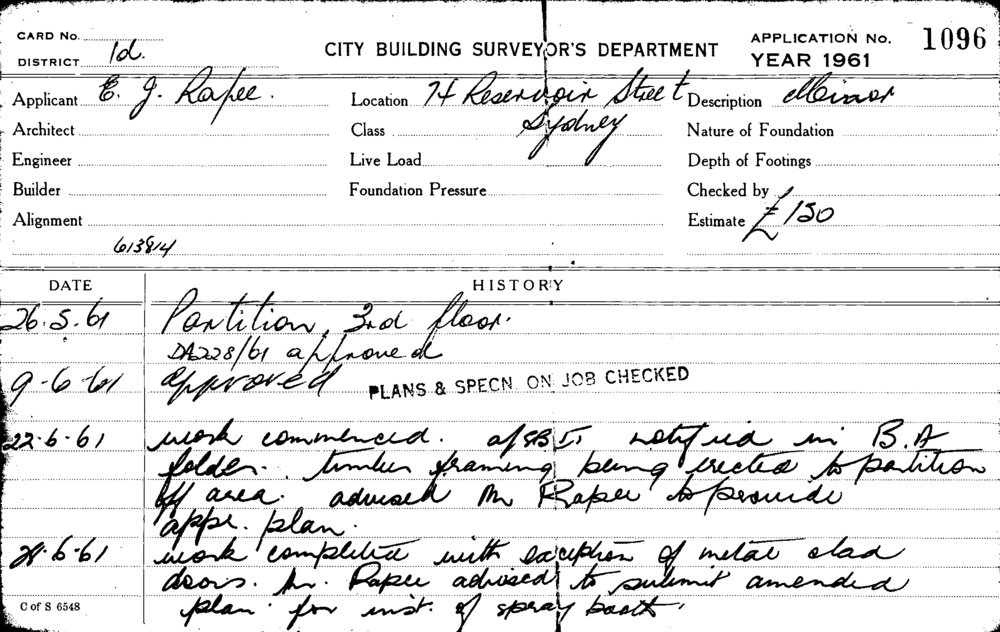 CARD No.
DISTRICT 1d.
CITY BUILDING SURVEYOR'S DEPARTMENT
APPLICATION No. 1096
YEAR 1961
Applicant E. J. Rapee.
Location 74 Reservoir Street
Sydney
Description Minor
Architect
Class
Nature of Foundation
Engineer
Live Load
Depth of Footings
Builder
Foundation Pressure
Checked by
Alignment
Estimate £150
613814
DATE
HISTORY
26.5.61 Partition, 3rd floor.
DA228/61 approved
9-6-61 approved PLANS & SPECN. ON JOB CHECKED
22-6-61 work commenced. notified in B.A
folder. timber framing being erected to partition
off area. advised Mr Rapee to provide
plan.
28-6-61 work completed with exception of metal clad
doors. Mr. Rapee advised to submit amended
plan for inst. of spray booth.
C of S 6548